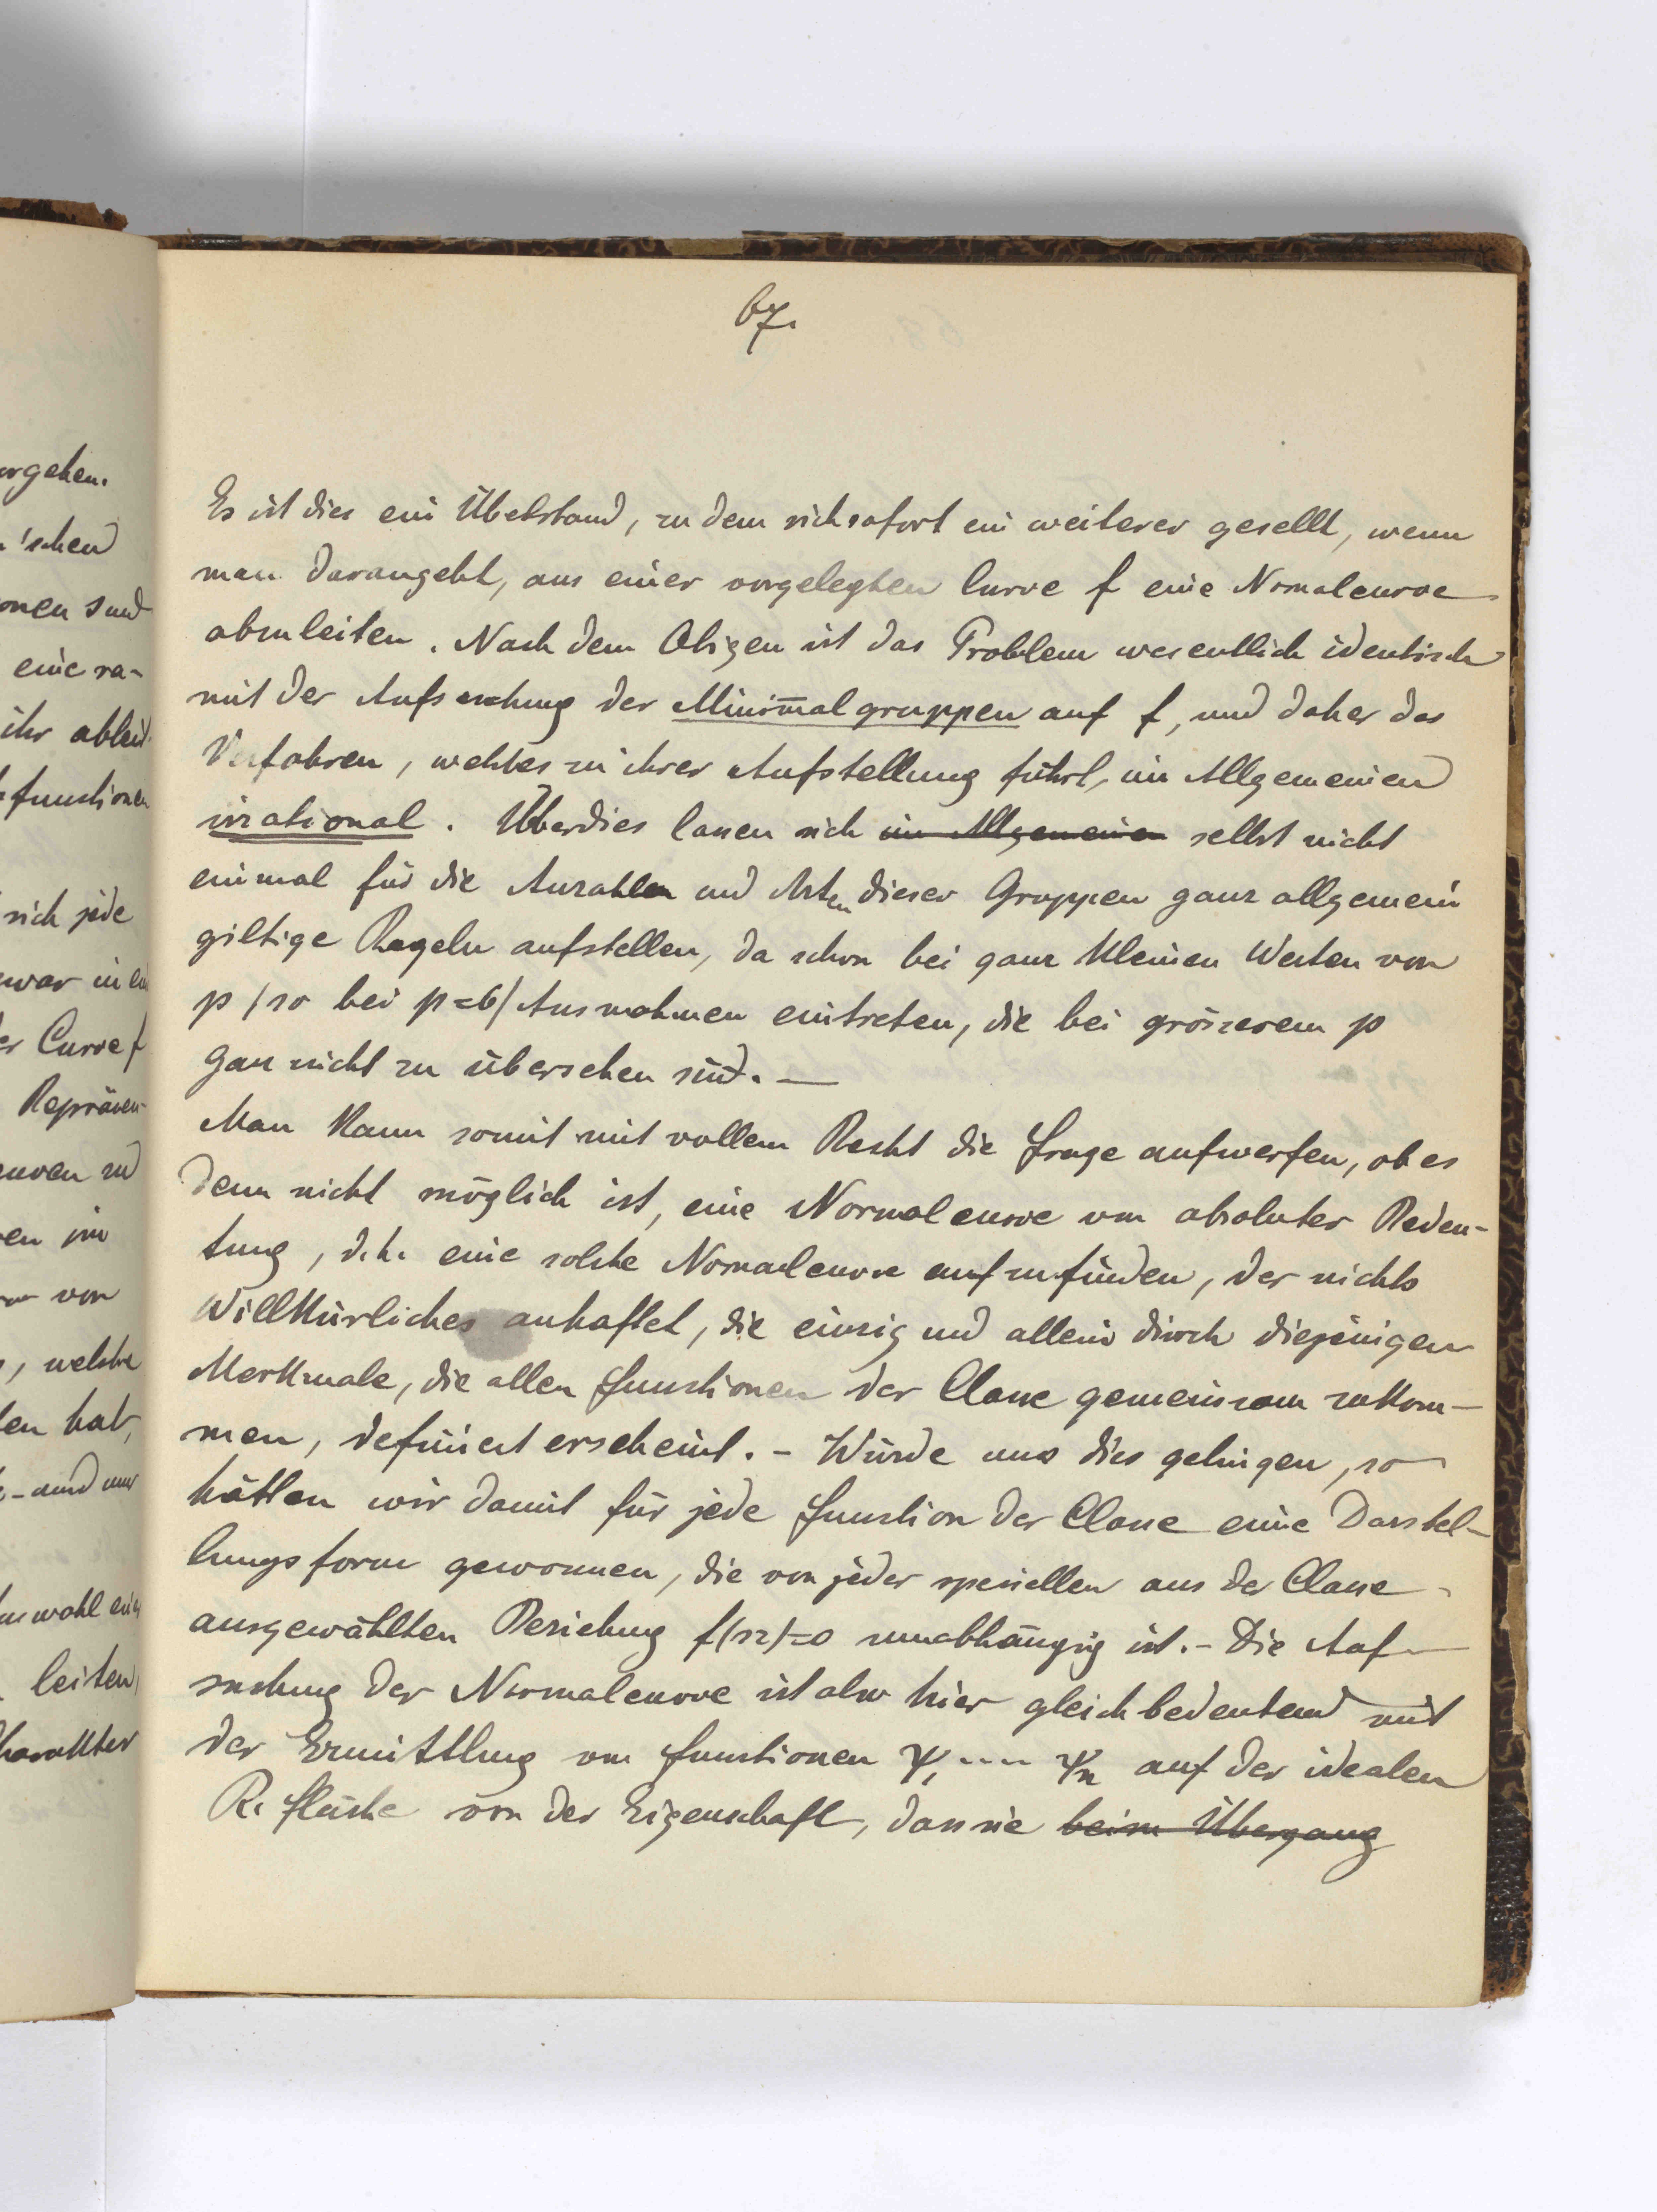 67.
Es ist dies ein Übelstand, zu dem sich sofort ein weiterer gesellt, wenn
man darangeht, aus einer vorgelegten Curve f eine Normalcurve
abzuleiten. Nach dem Obigen ist das Problem wesentlich identisch
mit der Aufsuchung der Minimalgruppen auf f, und daher das
Verfahren, welches zu ihrer Aufstellung führt, im Allgemeinen
irrational. Überdies lassen sich im Allgemeinen selbst nicht
einmal für die Anzahlen und Arten dieser Gruppen ganz allgemein
giltige Regeln aufstellen, da schon bei ganz kleinen Werten von
p /so bei p=6/ Ausnahmen eintreten, die bei grösserem p
gar nicht zu übersehen sind. —
Man kann somit mit vollem Recht die Frage aufwerfen, ob es
denn nicht möglich ist, eine Normalcurve von absoluter Bedeu-
tung, d.h. eine solche Normalcurve aufzufinden, der nichts
Willkürliches anhaftet, die einzig und allein durch diejenigen
Merkmale, die allen Functionen der Classe gemeinsam zukom-
men, definiert erscheint. - Würde uns dies gelingen, so
hätten wir damit für jede Function der Classe eine Darstel-
lungsform gewonnen, die von jeder speciellen aus der Classe
ausgewählten Beziehung f(sz)=0 unabhängig ist. - Die Auf-
suchung der Normalcurve ist also hier gleichbedeutend mit
der Ermittlung von Functionen ψ₁ .... ψn auf der idealen
R. fläche von der Eigenschaft, dass sie beim Übergang
orgehen.
'schen
onen sind
eine ra-
ihr ableit
functionen
sich jede
zwar in
er Curve f
Repräsen-
en im
von
, welche
en hat,
- und nur
leiten
harakter